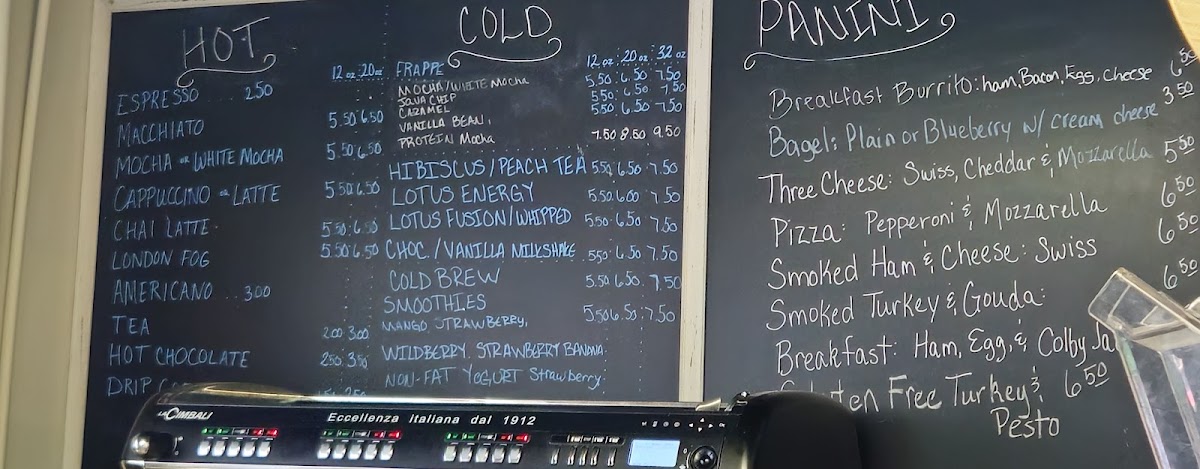 HOT
12 oz 20 oz
ESPRESSO ... 250
MACCHIATO 5.50 6.50
MOCHA or WHITE MOCHA 5.50 6.50
CAPPUCCINO or LATTE 5.50 6.50
CHAI LATTE 5.50 6.50
LONDON FOG 5.50 6.50
AMERICANO ... 300
TEA 200 300
HOT CHOCOLATE 250 350
DRIP
COLD
12 oz 20 oz 32 oz
FRAPPE
MOCHA/WHITE MOCHA 5.50 6.50 7.50
JAVA CHIP 5.50 6.50 7.50
CARAMEL 5.50 6.50 7.50
VANILLA BEAN,
PROTEIN Mocha 7.50 8.50 9.50
HIBISCUS/PEACH TEA 5.50 6.50 7.50
LOTUS ENERGY 5.50 6.00 7.50
LOTUS FUSION/WHIPPED 5.50 6.50 7.50
CHOC./VANILLA MILKSHAKE 550 6.50 7.50
COLD BREW 5.50 6.50 7.50
SMOOTHIES 5.50 6.50 7.50
MANGO, STRAWBERRY,
WILDBERRY, STRAWBERRY BANANA
NON-FAT YOGURT Strawberry
PANINI
Breakfast Burrito: ham, Bacon, Egg, cheese 6.50
Bagel: Plain or Blueberry w/ cream cheese 3.50
Three Cheese: Swiss, Cheddar & Mozzarella 5.50
Pizza: Pepperoni & Mozzarella 6.50
Smoked Ham & Cheese: Swiss 6.50
Smoked Turkey & Gouda: 6.50
Breakfast: Ham, Egg, & Colby
Free Turkey & 6.50
Pesto
LA CIMBALI
Eccellenza italiana dal 1912